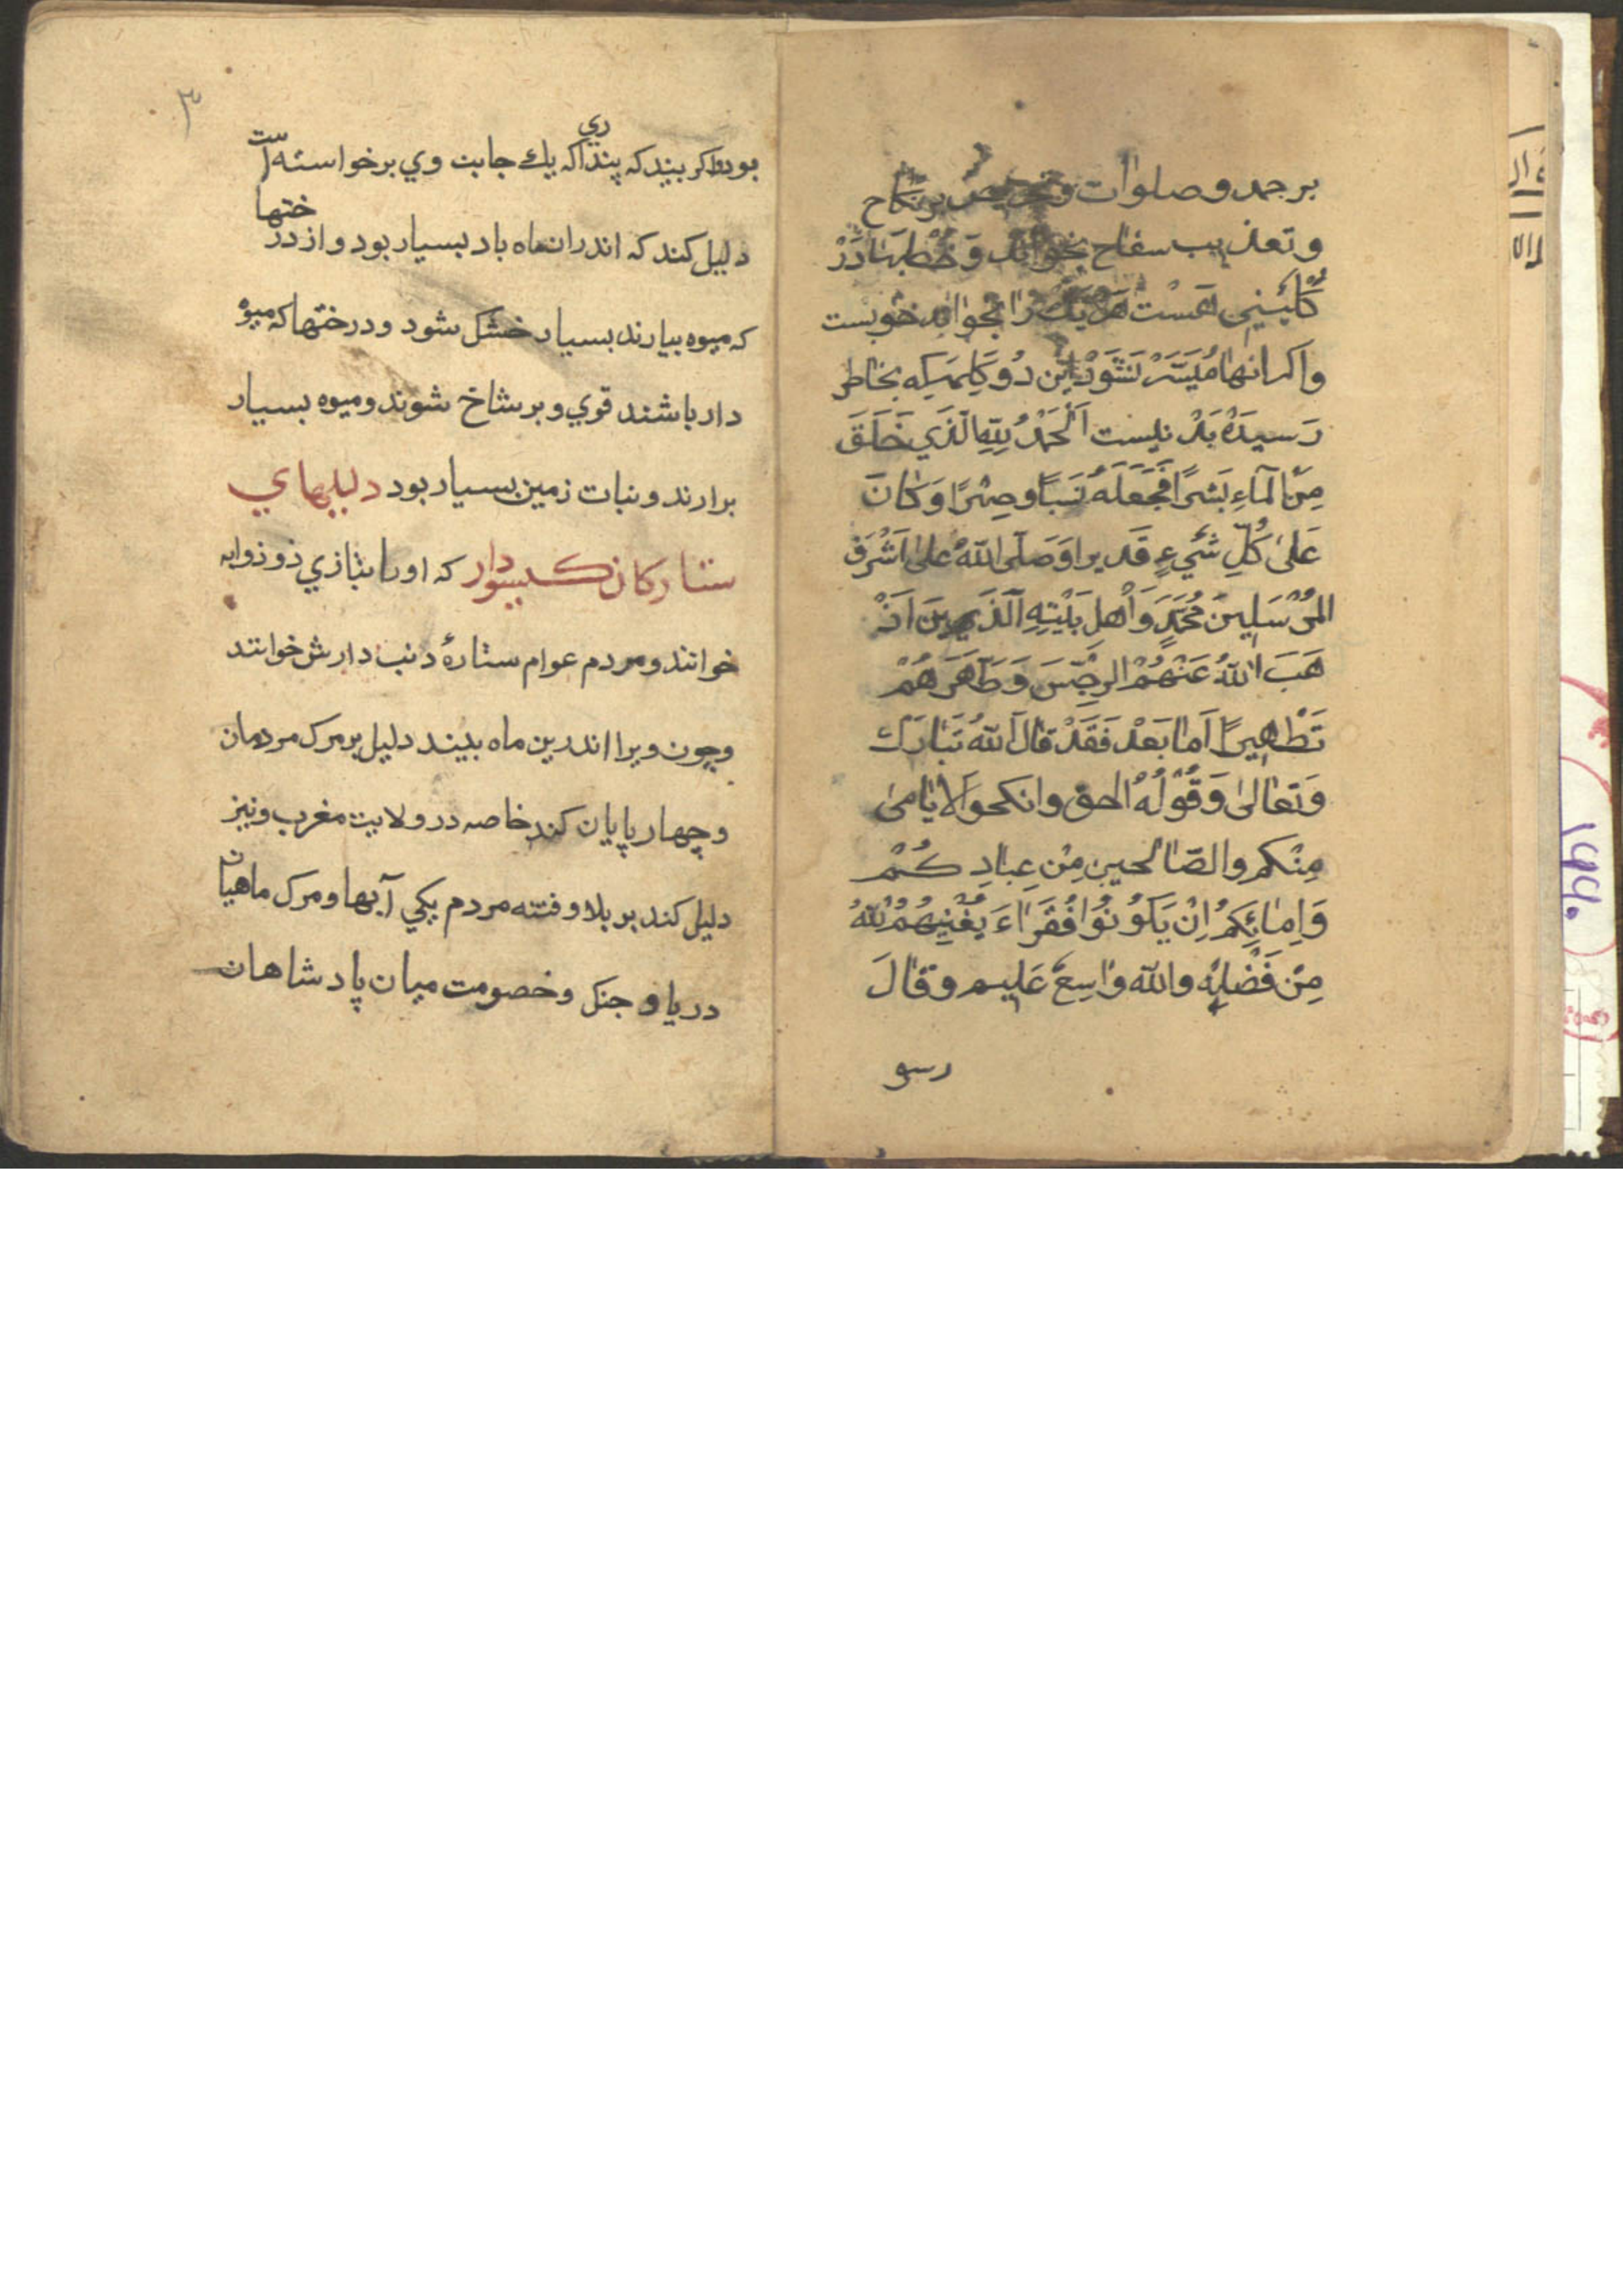 بر حمد و صلوات و تحریص بر نکاح
و تعذیب سفاح بخواند وَ خُطبَهَا دَرْ
کُلَینِی هَسْت هَر یَک را بخواند خوبست
واکر انها مُیَسَّرْ نَشَوَدْ اَیْن دُو کَلِمَه کِه بخاطر
رَسیدَهْ بَدْ نیست اَلْحَمْدُ لِلّٰهِ الَّذي خَلَقَ
مِنَ الْمآءِ بَشَرًا فَجَعَلَهُ نَسَبًا وصِهْرًا وَكَانَ
عَلىٰ كُلِّ شَيْءٍ قَديرا وَصَلَّى اللّٰهُ عَلىٰ اَشْرَفِ
المُرْسَلِينَ مُحَمَّدٍ وَاَهْلِ بَيْتِهِ الَّذينَ اَذْ
هَبَ اللّٰهُ عَنْهُمُ الرِجْسَ وَطَهَّرَهُمْ
تَطْهِيرًا اَما بَعْدْ فَقَدْ قالَ اللّٰهُ تَبَارَكَ
وَتَعٰالىٰ وَقَوْلُهُ الحق وانكحوا الايٰامىٰ
مِنْكم والصّالحين مِنْ عِبٰادِكُمْ
وَاِمٰائِكُمْ اِنْ يَكُونُوا فُقَرٰاءَ يُغْنِيهُمُ اللّٰهُ
مِنْ فَضْلِهِ واللّٰه وٰاسِعٌ عَليم وَقٰالَ
رسو
٣
بود واکر بیند که پنداري که یك جانبت وي برخواسته است
دلیل کند که اندران ماه باد بسیار بود و از درختها
که میوه بیارند بسیار خشک شود و درختها که میوه
دار باشند قوي و برشاخ شوند و میوه بسیار
برارند و نبات زمین بسیار بود دلیلهاي
ستارکان کیسودار که اورا بتازي ذو ذوابه
خوانند و مردم عوام ستارهٔ دنب دارش خوانند
وچون ویرا اندرین ماه بینند دلیل بر مرک مردمان
وچهار پایان کند خاصه در ولایت مغرب ونیز
دلیل کند بر بلا و فتنه مردم پکي آبها و مرک ماهیان
دریا و جنک و خصومت میان پادشاهان